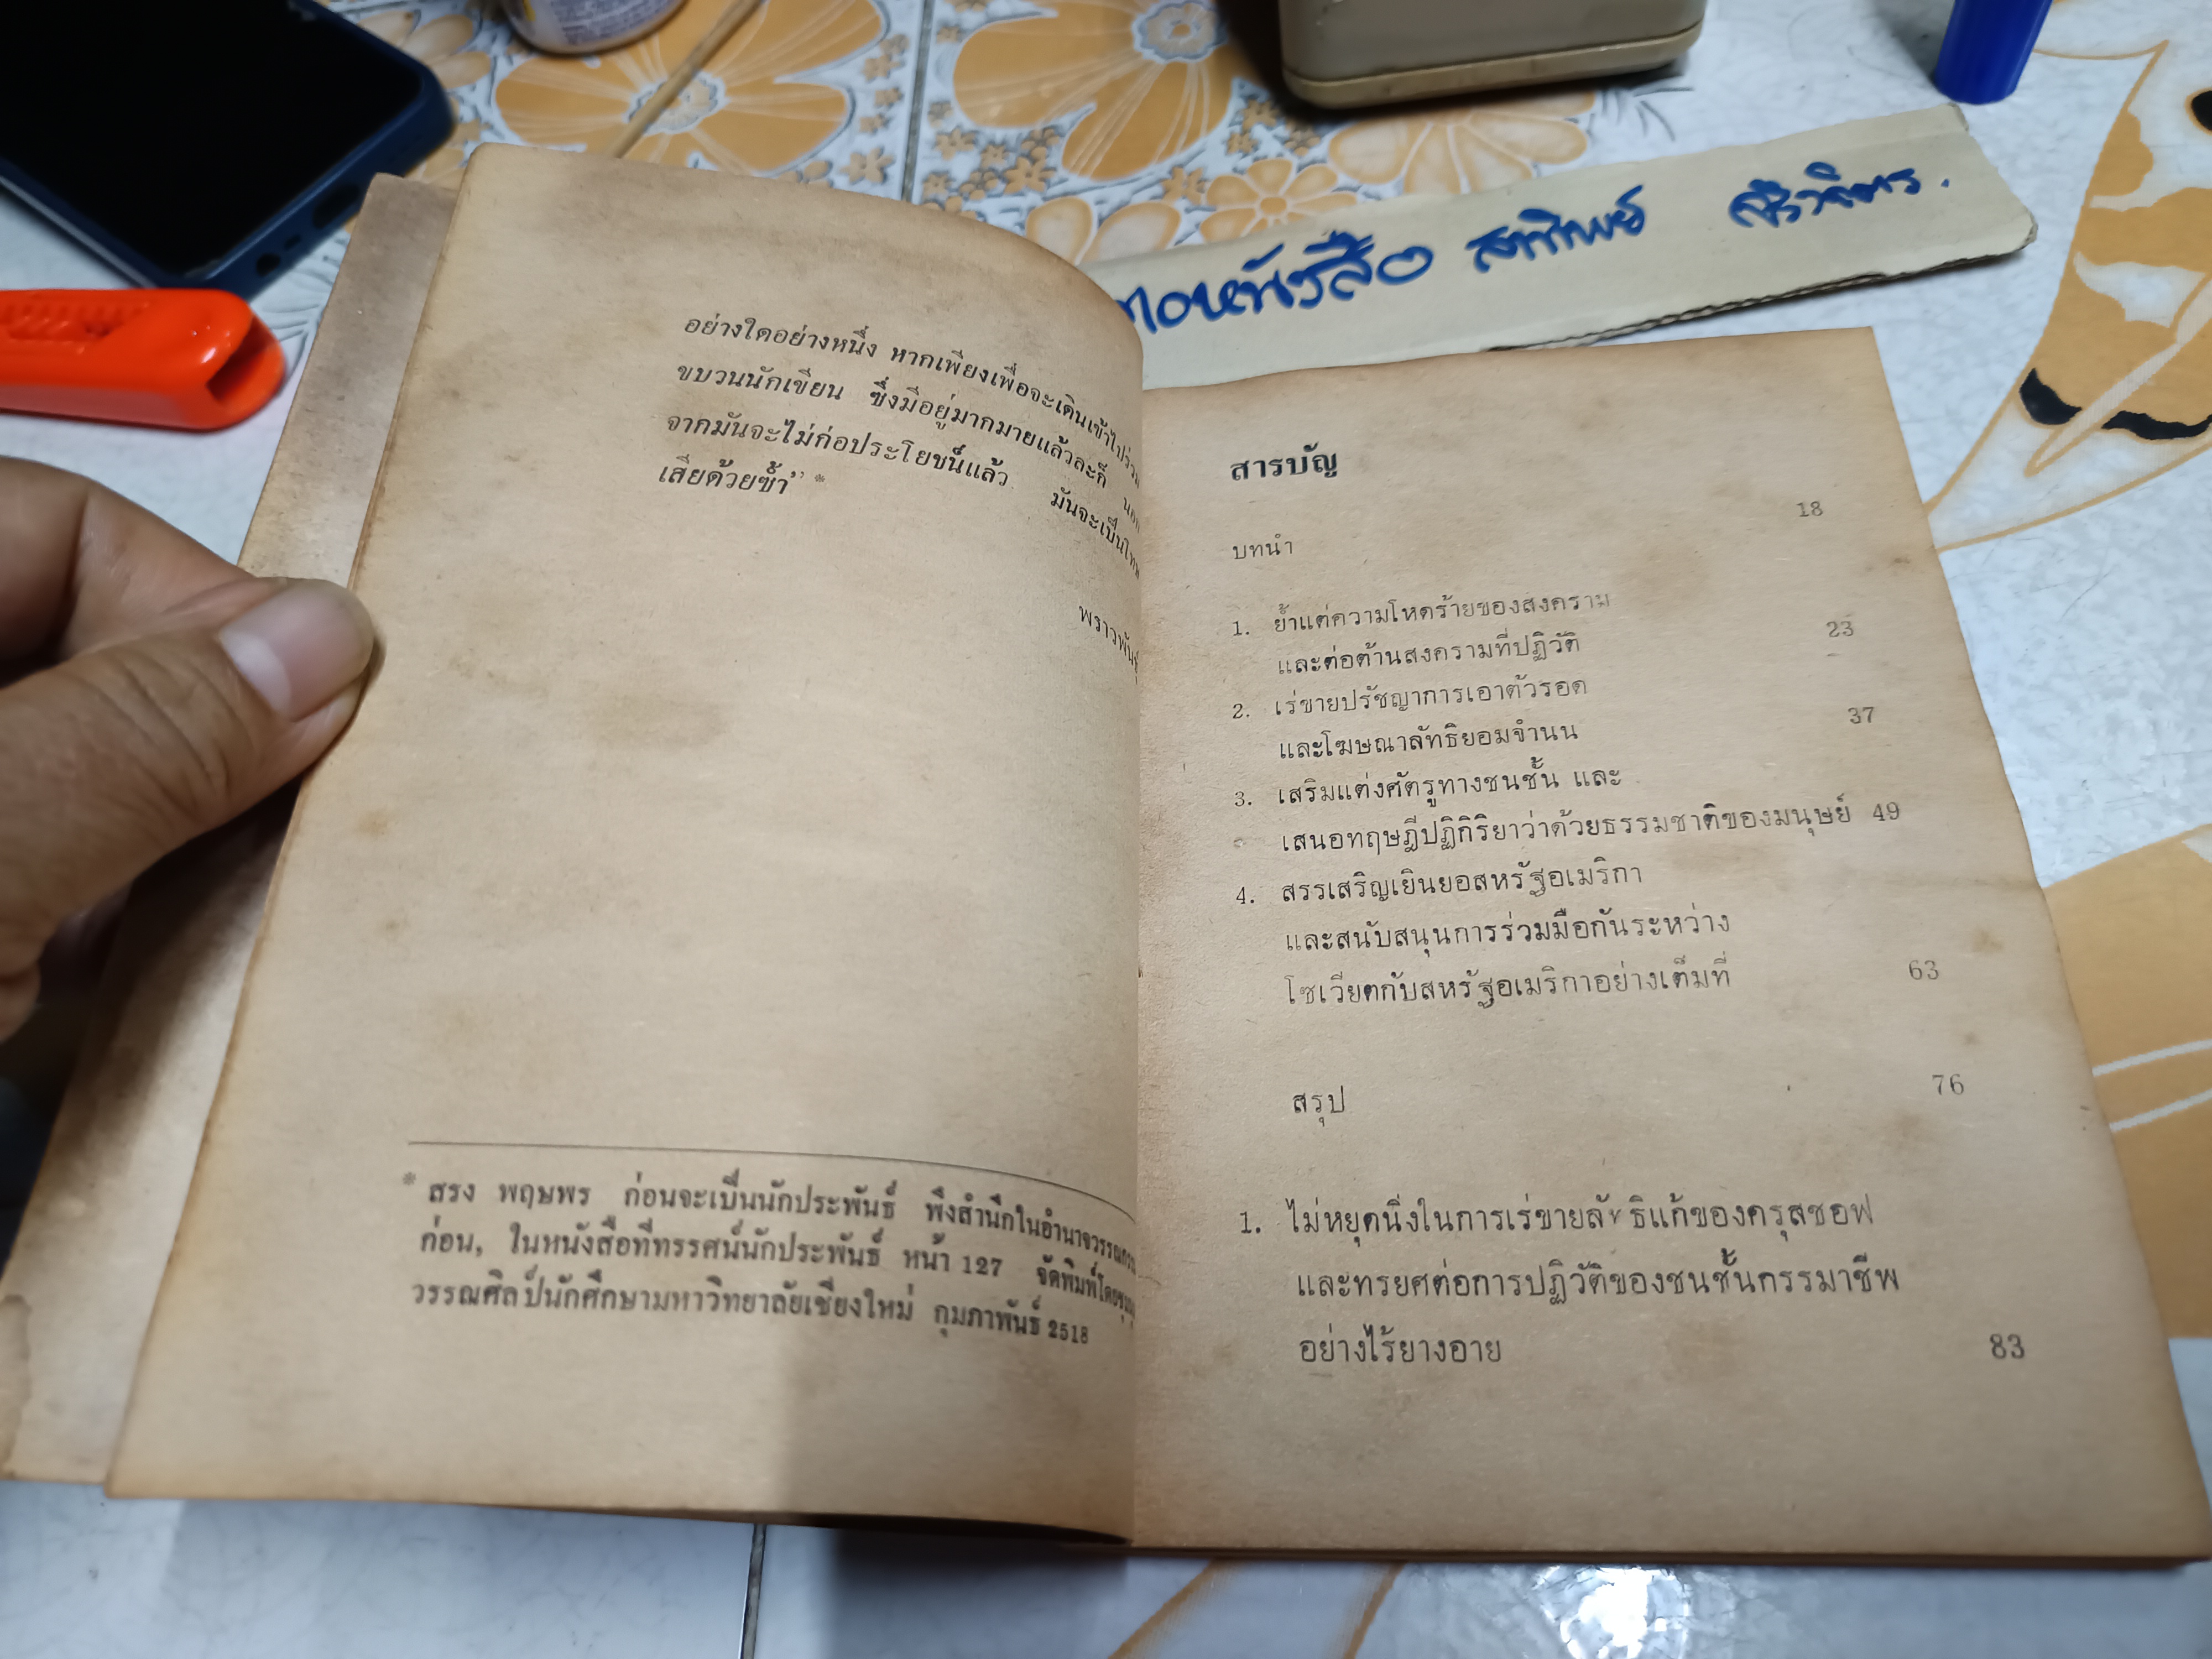 อย่างใดอย่างหนึ่ง หากเพียงเพื่อจะเดินเข้าไปร่วม
ขบวนนักเขียน ซึ่งมีอยู่มากมายแล้วละก็
จากมันจะไม่ก่อประโยชน์แล้ว มันจะเป็น
เสียด้วยซ้ำ" *
* สรง พฤษพร ก่อนจะเป็นนักประพันธ์ พึงสำนึกในอำนาจวรรณกรรม
ก่อน, ในหนังสือที่ทรรศน์นักประพันธ์ หน้า 127 จัดพิมพ์โดย
วรรณศิลป์นักศึกษามหาวิทยาลัยเชียงใหม่ กุมภาพันธ์ 2518
หนังสือ สาทิพย์ ศิริวิจิตร.
สารบัญ
บทนำ 18
1. ย้ำแต่ความโหดร้ายของสงคราม
และต่อต้านสงครามที่ปฏิวัติ 23
2. เร่ขายปรัชญาการเอาตัวรอด
และโฆษณาลัทธิยอมจำนน 37
3. เสริมแต่งศัตรูทางชนชั้น และ
เสนอทฤษฎีปฏิกิริยาว่าด้วยธรรมชาติของมนุษย์ 49
4. สรรเสริญเยินยอสหรัฐอเมริกา
และสนับสนุนการร่วมมือกันระหว่าง
โซเวียตกับสหรัฐอเมริกาอย่างเต็มที่ 63
สรุป 76
1. ไม่หยุดนิ่งในการเร่ขายลัทธิแก้ของครุสชอฟ
และทรยศต่อการปฏิวัติของชนชั้นกรรมาชีพ
อย่างไร้ยางอาย 83